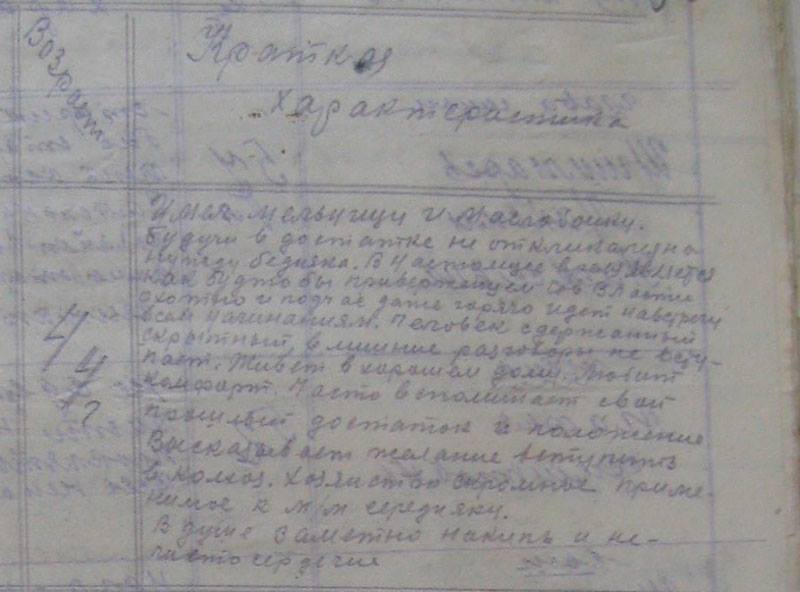 Возраст
Краткая
характеристика
Имел мельницу и маслобойку.
будучи в достатке не откликался на
нужду бедняка. В настоящее время является
как будто бы приверженцем Сов Власти
охотно и подчас даже горячо идет навстречу
всем начинаниям. Человек сдержанный
скрытный в лишние разговоры не всту-
пает. Живет в хорошем доме. Любит
комфорт. Часто вспоминает свой
прошлый достаток и положение
Высказывает желание вступить
в колхоз. Хозяйство скромное приме-
нимое к м/м середняку.
В душе заметно накипь и не-
чистосердечие